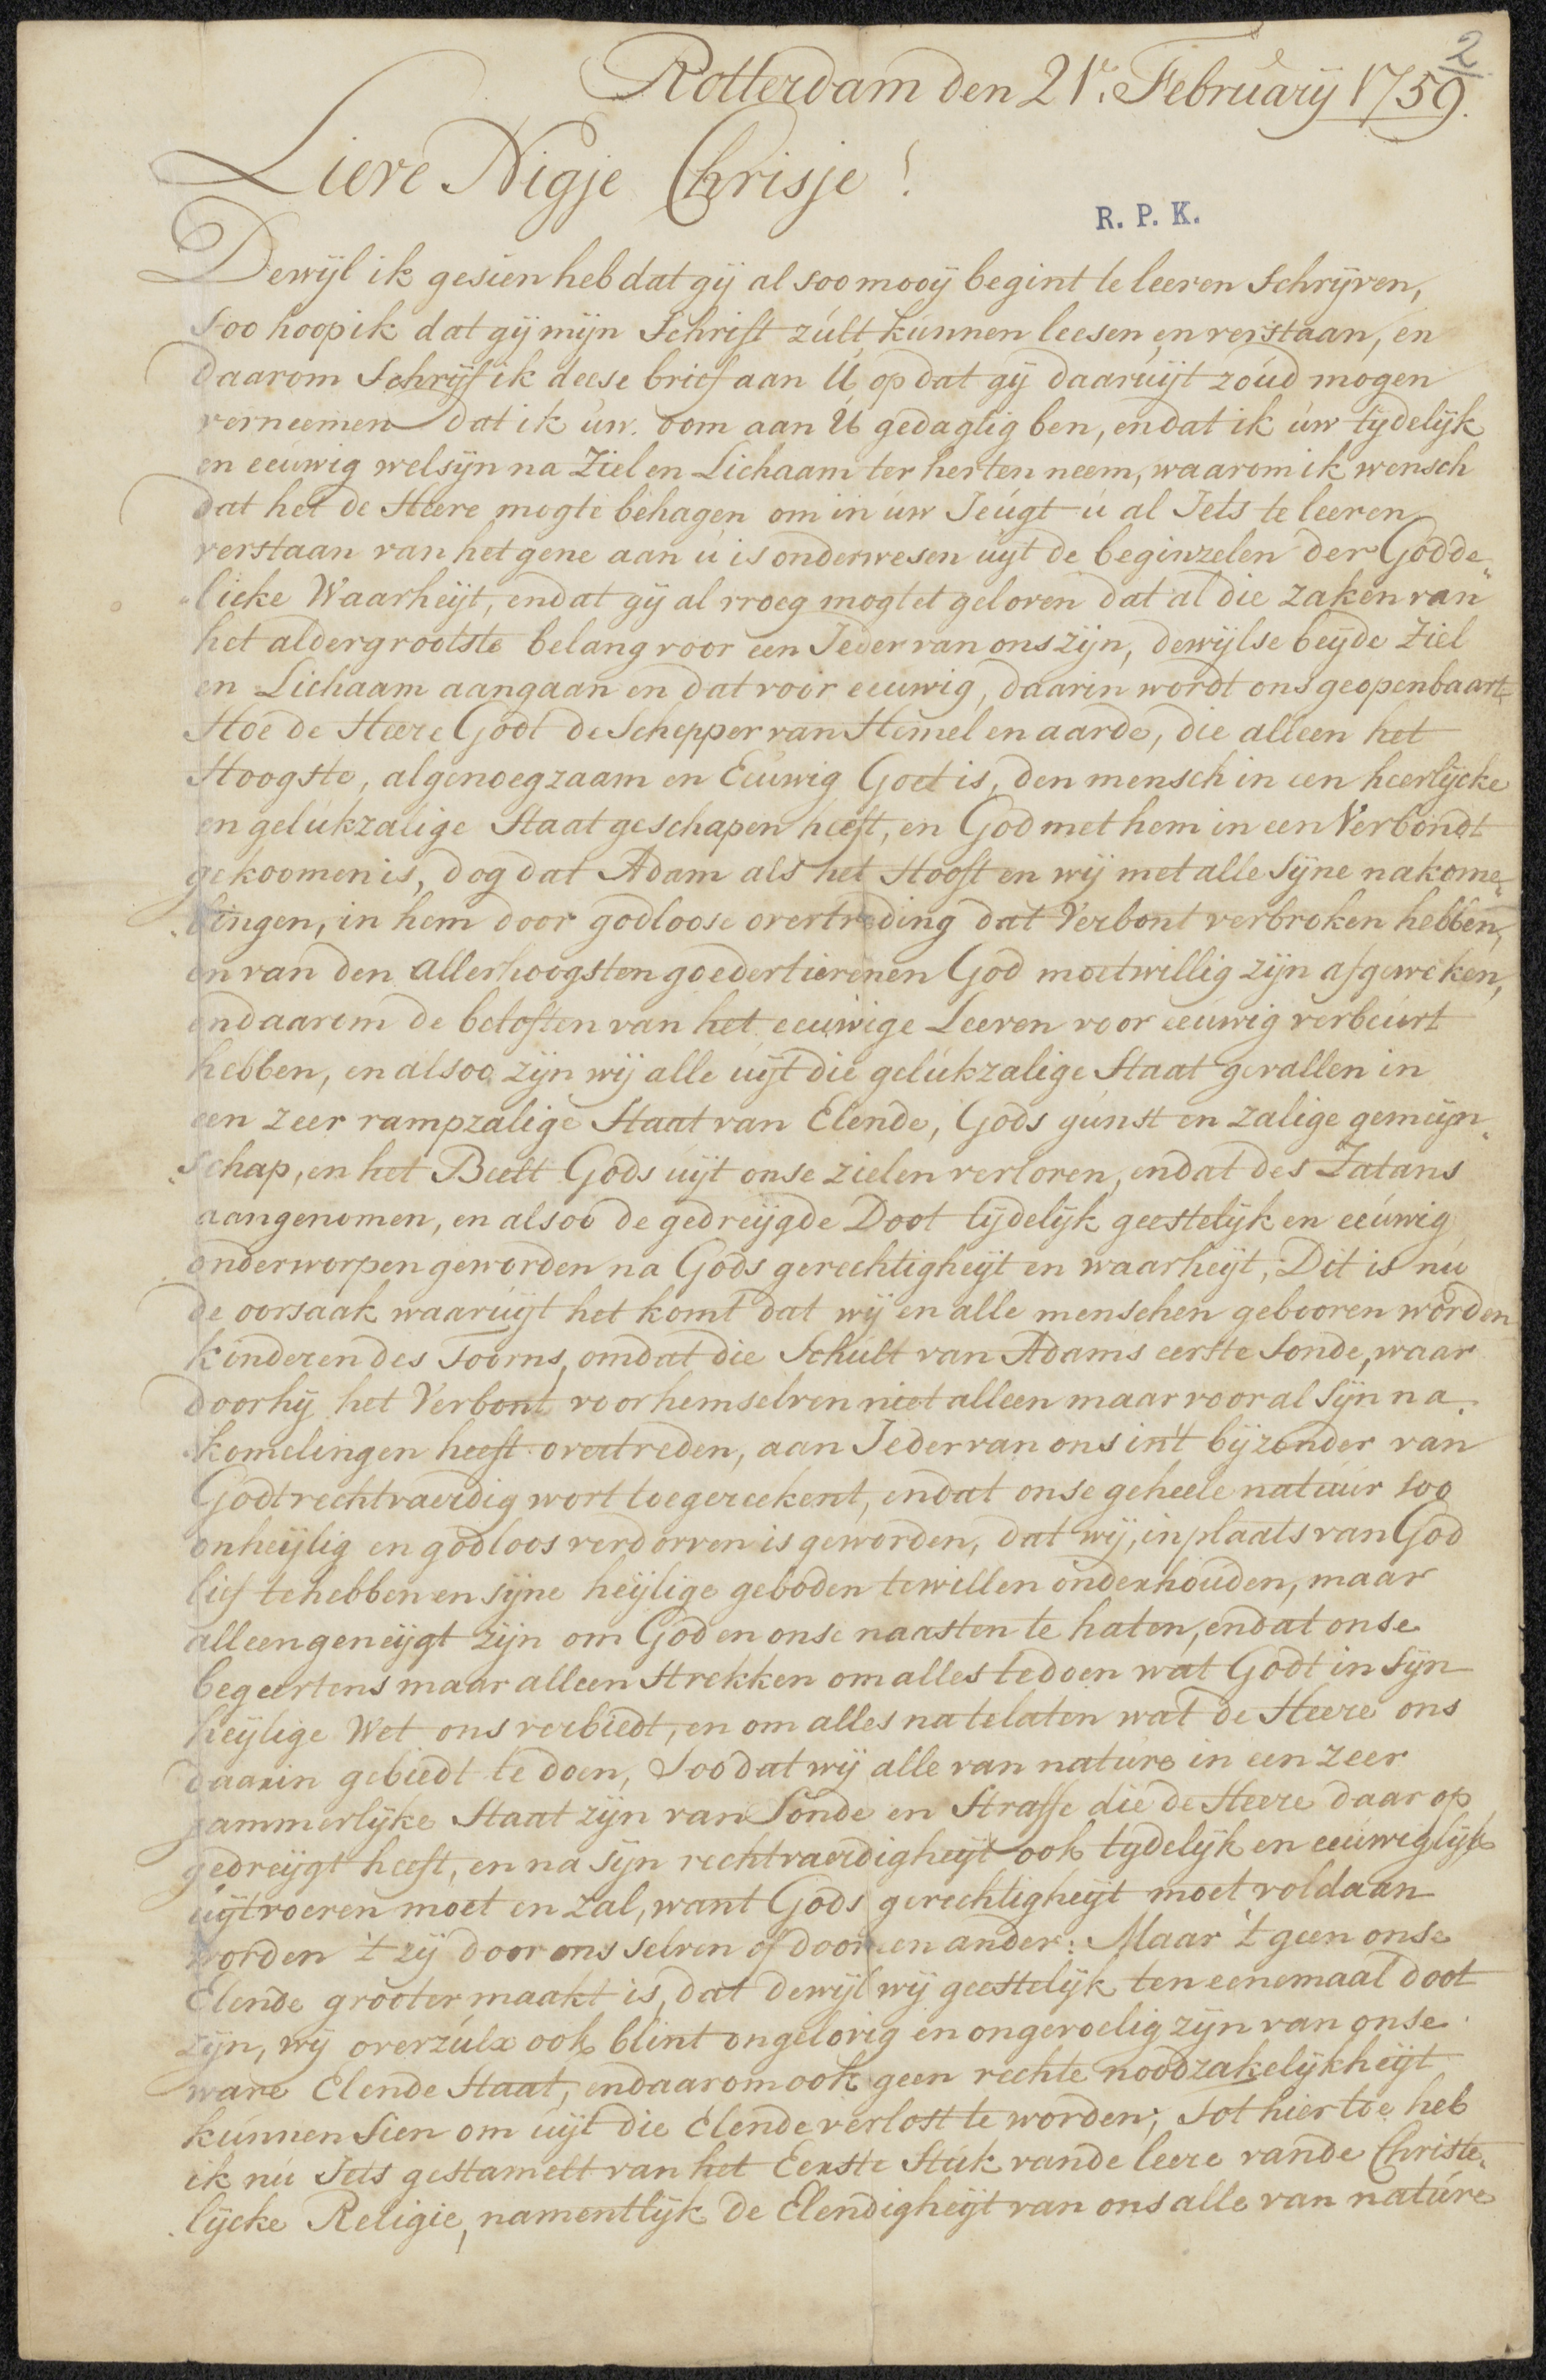 2
Rotterdam den 21. Februarij 1759.
Lieve Nigje Chrisje!
R. P. K.
Dewijl ik gesien heb dat gij al soo mooij begint te leeren Schrijven,
soo hoop ik dat gij mijn Schrift zúlt kúnnen leesen en verstaan, en
daarom Schrijf ik deese brief aan Ú, op dat gij daarúijt zóud mogen
verneemen dat ik úw. oom aan Ú gedagtig ben, en dat ik úw tijdelijk
en eeúwig welsijn na Ziel en Lichaam ter herten neem, waarom ik wensch
dat het de Heere mogte behagen om in úw Jeúgt ú al Jets te leeren
verstaan van het gene aan ú is onderwesen úijt de beginzelen der Godde„
„licke Waarheijt, en dat gij al vroeg mogtet geloven dat al die zaken van
het aldergrootste belang voor een Jeder van ons zijn, dewijl se beijde Ziel
en Lichaam aangaan en dat voor eeuwig, daarin wordt ons geopenbaart
Hoe de Heere Godt de Schepper van Hemel en aarde, die alleen het
Hoogste, algenoegzaam en Eeúwig Goet is, den mensch in een heerlijcke
en gelúkzalige Staat geschapen heeft, en God met hem in een Verbondt
gekoomen is, dog dat Adam als het Hooft en wij met alle Sijne nakome„
„lingen, in hem door godloose overtreding dat Verbont verbroken hebben,
en van den allerhoogsten goedertierenen God moetwillig zijn afgeweken,
en daarom de beloften van het eeuwige Leeven voor eeúwig verbeúrt
hebben, en alsoo zijn wij alle úijt die gelúkzalige Staat gevallen in
een zeer rampzalige Staat van Elende, Gods gúnst en zalige gemeijn„
„schap, en het Beelt Gods úijt onse zielen verloren, en dat des Zatans
aangenomen, en alsoo de gedreijgde Doot tijdelijk geestelijk en eeúwig
onderworpen geworden na Gods gerechtigheijt en waarheijt, Dit is nú
de oorsaak waarúijt het komt dat wij en alle menschen gebooren worden
kinderen des Toorns, omdat die Schúlt van Adams eerste Sonde, waar
door hij het Verbont voor hemselven niet alleen maar voor al Sijn na„
„komelingen heeft overtreden, aan Jeder van ons in't bijzonder van
Godt rechtvaerdig wort toegereekent, en dat onse geheele natúúr soo
onheijlig en godloos verdorven is geworden, dat wij, in plaats van God
lief te hebben en sijne heijlige geboden te willen onderhouden, maar
alleen geneijgt zijn om God en onse naasten te haten, en dat onse
begeertens maar alleen Strekken om alles te doen wat Godt in Sijn
heijlige Wet ons verbiedt, en om alles na te laten wat de Heere ons
daarin gebiedt te doen, Soo dat wij alle van nature in een zeer
jammerlijke Staat zijn van Sonde en Straffe die de Heere daar op
gedreijgt heeft, en na Sijn rechtvaerdigheijt ook tijdelijk en eeúwiglijk
úijtvoeren moet en zal, want Gods gerechtigheijt moet voldaan
worden 't zij door ons selven of door een ander: Maar 't geen onse
Elende grooter maakt is, dat dewijl wij geestelijk ten eenemaal doot
zijn, wij overzúlx ook blint ongelovig en ongevoelig zijn van onse
ware Elende Staat, en daarom ook geen rechte noodzakelijkheijt
kúnnen Sien om úijt die Elende verlost te worden; Tot hier toe heb
ik nú Jets gestamelt van het Eerste Stúk van de leere van de Christe„
„lijcke Religie, namentlijk de Elendigheijt van ons alle van natúre